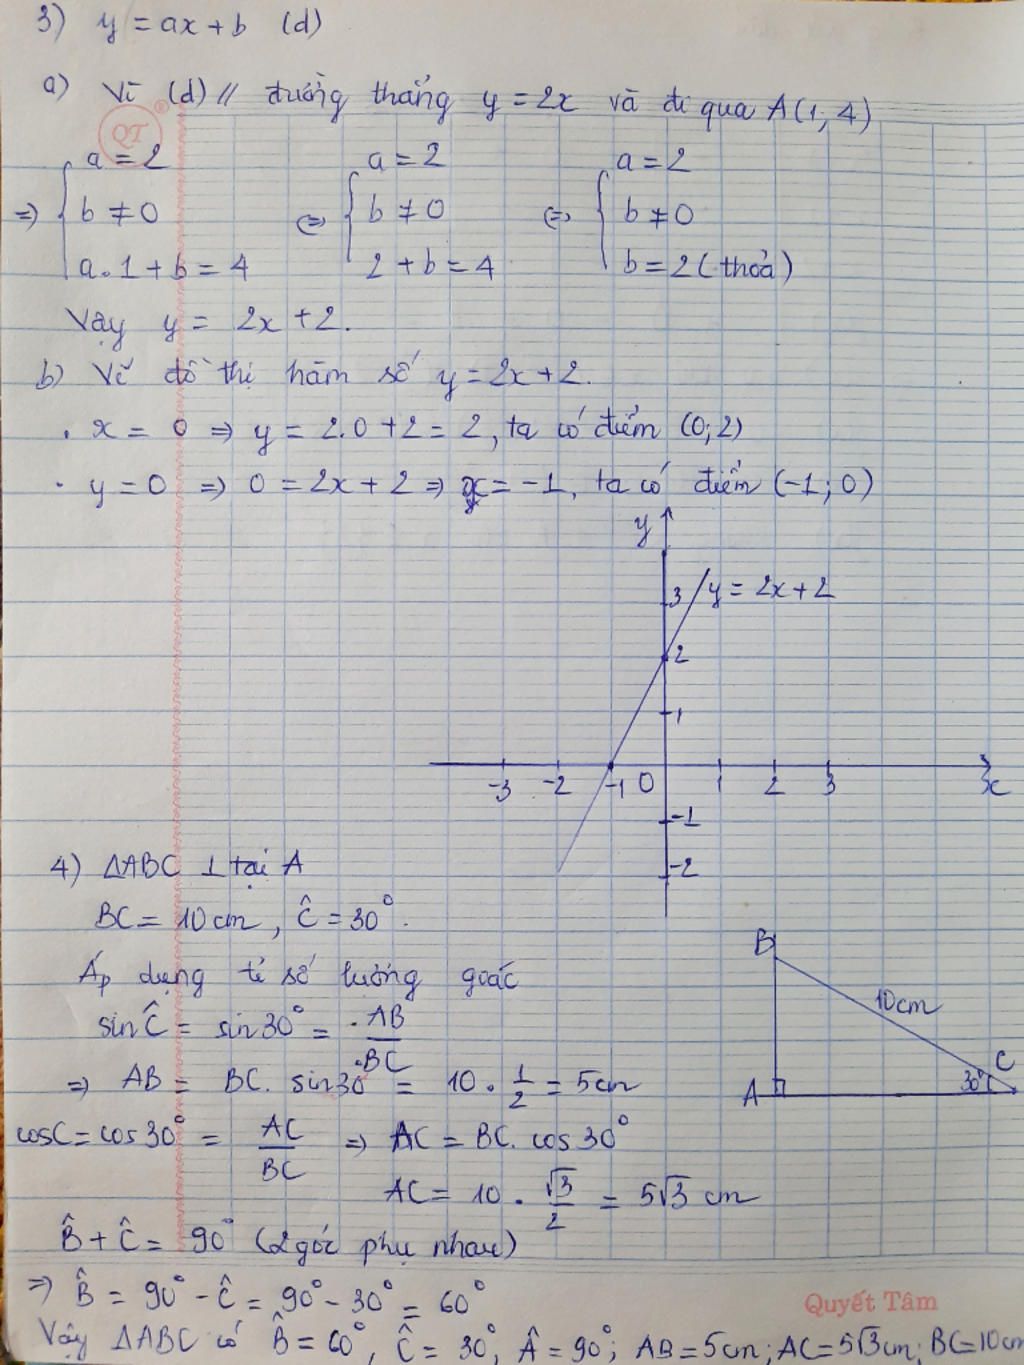 3) y = ax + b (d)
a) Vì (d) // đường thẳng y = 2x và đi qua A(1; 4)
QT ®
a = 2 a = 2 a = 2
=> b ≠ 0 <=> b ≠ 0 <=> b ≠ 0
a.1 + b = 4 2 + b = 4 b = 2 (thỏa)
Vậy y = 2x + 2.
b) Vẽ đồ thị hàm số y = 2x + 2.
. x = 0 => y = 2.0 + 2 = 2, ta có điểm (0; 2)
. y = 0 => 0 = 2x + 2 => x = -1, ta có điểm (-1; 0)
y
3 y = 2x + 2
2
1
-3 -2 -1 0 1 2 3 x
-1
-2
4) ΔABC ⊥ tại A
BC = 10 cm, Ĉ = 30°.
B
Áp dụng tỉ số lượng goác
10 cm
sin Ĉ = sin 30° = AB/BC
=> AB = BC. sin 30° = 10 . 1/2 = 5cm
A 30° C
cosC = cos 30° = AC/BC => AC = BC. cos 30°
AC = 10 . √3/2 = 5√3 cm
B̂ + Ĉ = 90° (2 góc phụ nhau)
=> B̂ = 90° - Ĉ = 90° - 30° = 60°
Quyết Tâm
Vậy ΔABC có B̂ = 60°, Ĉ = 30°, Â = 90°; AB = 5cm; AC = 5√3 cm; BC = 10cm